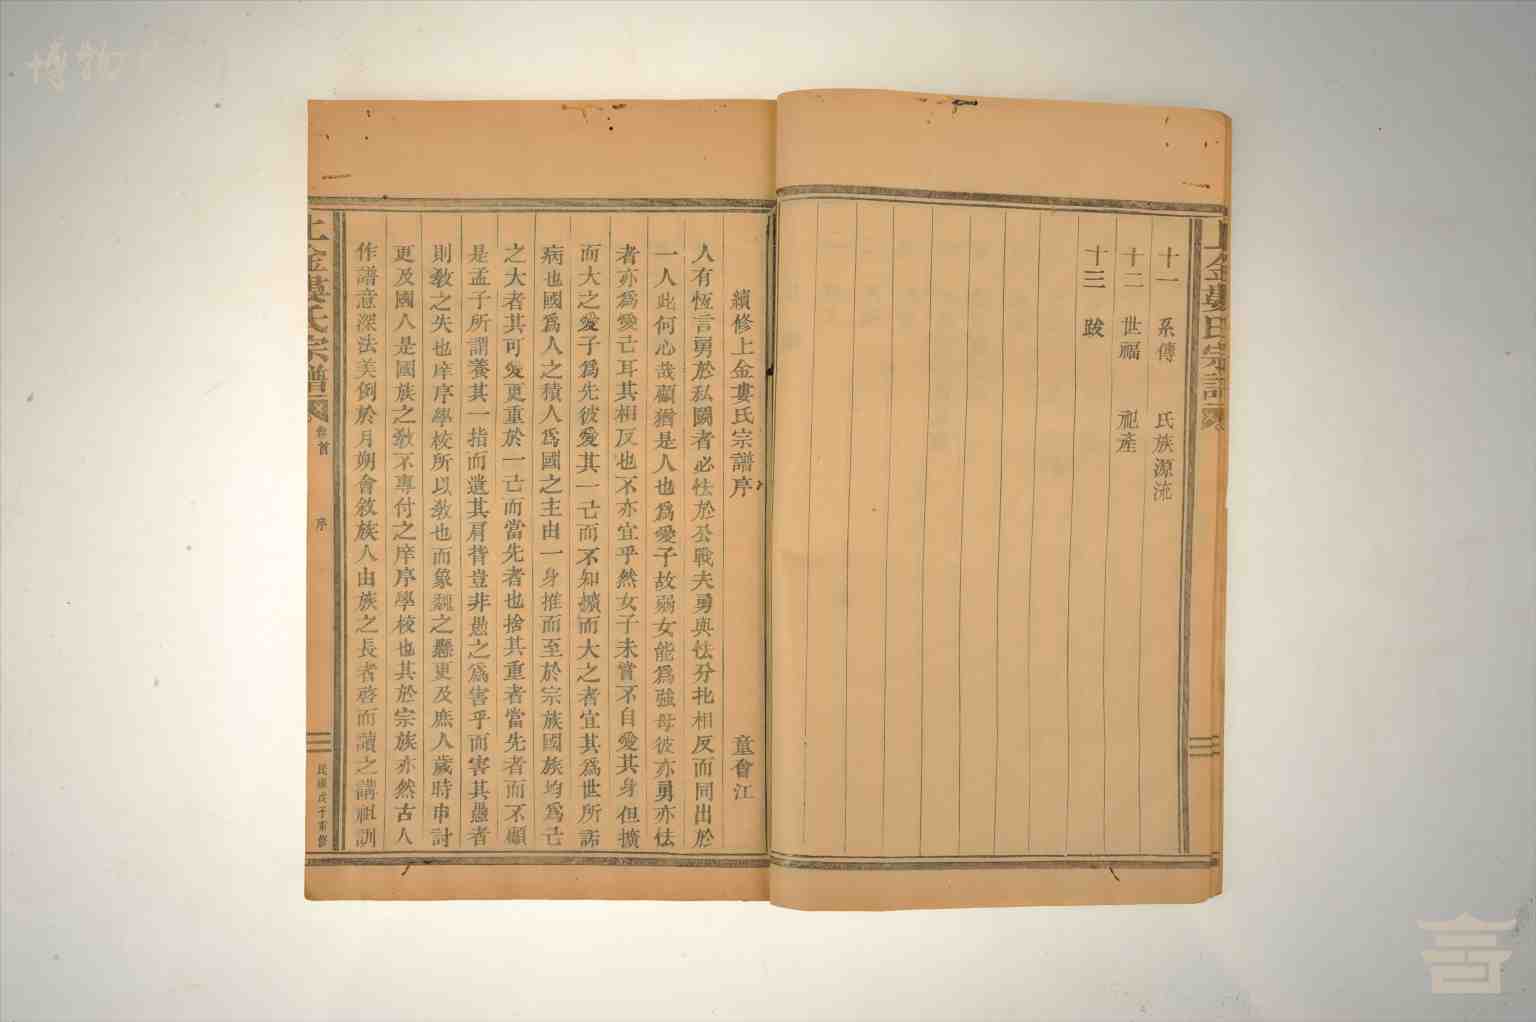 十一 系傳 氏族源流
十二 世福 祀產
十三 跋
續修上金婁氏宗譜序 童會江
人有恆言勇於私鬭者必怯於公戰夫勇與怯分扎相反而同出於
一人此何心哉顧猶是人也爲愛子故弱女能爲強母彼亦勇亦怯
者亦爲愛己耳其相反也不亦宜乎然女子未嘗不自愛其身但擴
而大之愛子爲先彼愛其一己而不知擴而大之者宜其爲世所詬
病也國爲人之積人爲國之主由一身推而至於宗族國族均爲己
之大者其可愛更重於一己而當先者也捨其重者當先者而不顧
是孟子所謂養其一指而遺其肩背豈非愚之爲害乎而害其愚者
則教之失也庠序學校所以教也而象魏之懸更及庶人歲時申討
更及國人是國族之教不專付之庠序學校也其於宗族亦然古人
作譜意深法美例於月朔會敘族人由族之長者啓而讀之講祖訓
上金婁氏宗譜 卷首 序 民國戊子重修
上金婁氏宗譜
博物